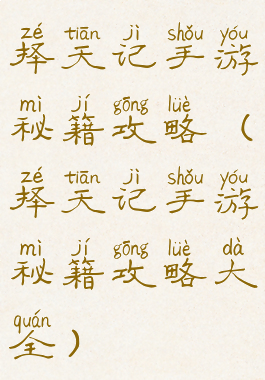 zé tiān jì shǒu yóu
择天记手游
mì jí gōng lüè
秘籍攻略（
zé tiān jì shǒu yóu
择天记手游
mì jí gōng lüè dà
秘籍攻略大
quán
全）